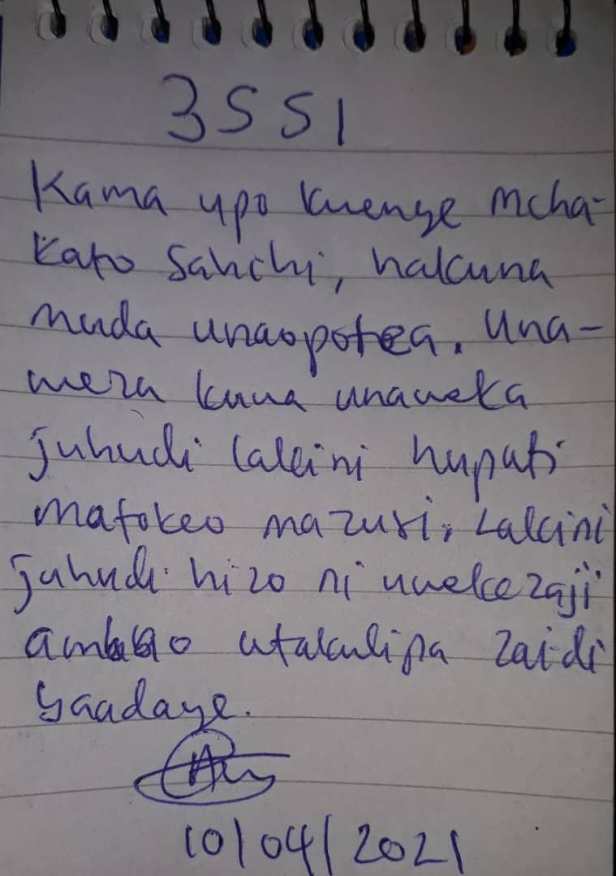 3551
Kama upo kwenye mcha-
kato sahihi, hakuna
muda unaopotea. Una-
weza kuwa unaweka
juhudi lakini hupati
matokeo mazuri, lakini
juhudi hizo ni uwekezaji
ambao utakulipa zaidi
baadaye.
10/04/2021